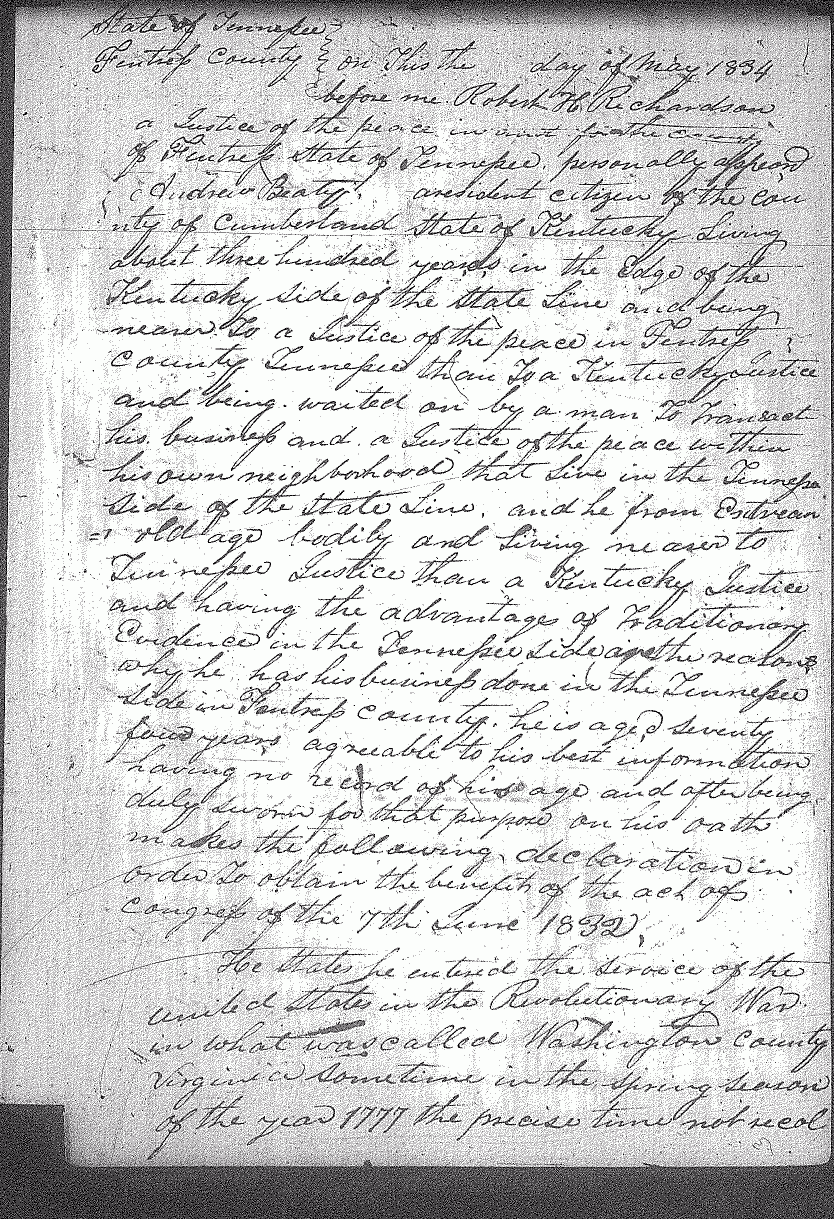 State of Tennessee }
Fentress County } on this the day of May 1834
before me Robert H Richardson
a Justice of the peace in and for the county
of Fentress State of Tennessee. personally appeard
Andrew Beaty. a resident citizen of the cou
nty of Cumberland State of Kentucky Living
about three hundred years, in the Edge of the
Kentucky Side of the State Line and being
nearer To a Justice of the peace in Fentress
county Tennessee than To a Kentucky Justice
and being. waited on by a man To Transact
his. business and. a Justice of the peace within
his own neighborhood that Live in the Tennessee
Side of the State Line. and he from
= old age bodily and Living nearer to
Tennessee Justice than a Kentucky Justice
and having the advantages of Traditionary
Evidence in the Tennessee Side are the reasons
why he has his business done in the Tennessee
Side in Fentress county. he is aged seventy
four years, agreeable to his best information
having no record of his age and after being
duly sworn for that purpose on his oath
makes the following declaration in
order To obtain the benefit of the act of
Congress of the 7th June 1832,
He States he entered the Service of the
united States in the Revolutionary War.
in what was called Washington County
Virginia Sometime in the Spring Season
of the year 1777 the precise time not recol